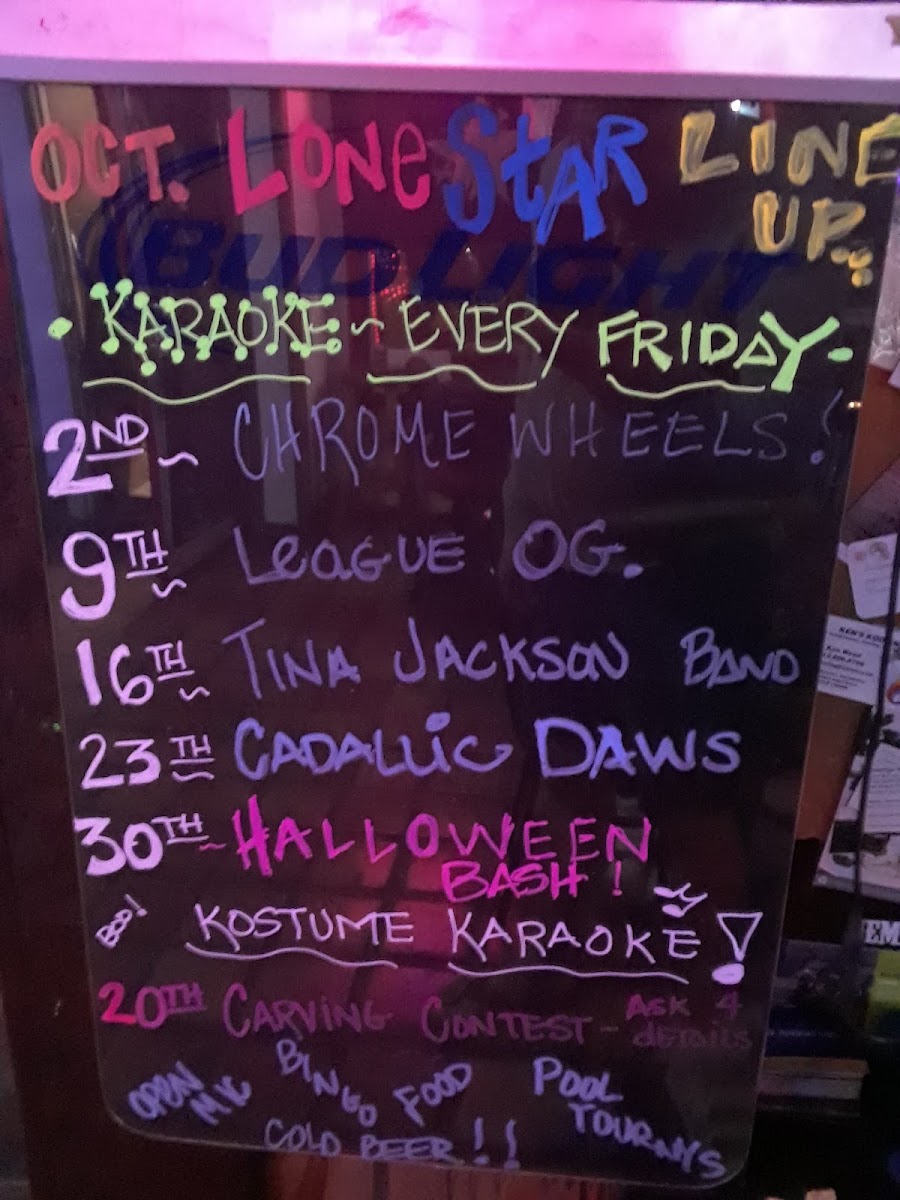 OCT. LONe StAR LINE
UP...
BUD LIGHT
• KARAOKE ~ EVERY FRIDAY •
2ND ~ CHROME WHEELS!
9TH ~ LeaGUE OG.
16TH ~ TINA JACKSON BAND
23TH ~ CADALLiC DAWS
30TH ~ HALLOWEEN
BASH!
BOO! KOSTUME KARAOKE!
20TH CARViNG CONTEST - ASK 4
detAils
OPEN
MIC
BINGO
FOOD
POOL
TOURNYS
COLD BEER!!